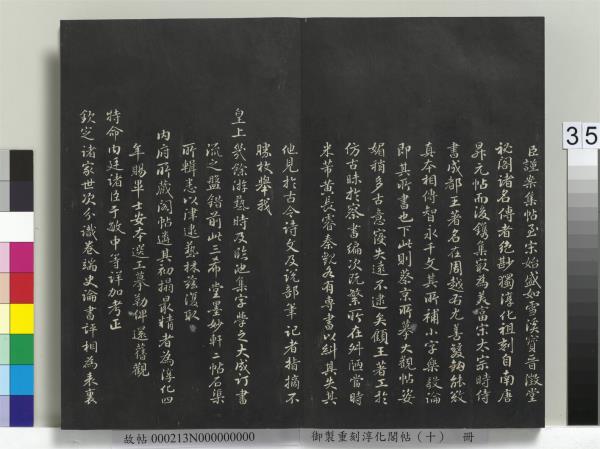 臣謹案集帖至宋始盛如雪溪寶晉澂堂
祕閣諸名傳者絶尠獨淳化祖刻自南唐
昇元帖而後鑴集最為美富宋太宗時侍
書成都王著名在周越西尤善臨鉤能欵
真本相傳智永千文其所補小字樂毅論
即其所書也下此則蔡京所摹大觀帖姿
媚稍多古意寖失遠不逮矣顧王著工於
仿古昧於察書編次沉縈所在舛陋當時
米芾黃長睿秦觀各有專書以糾其失其
他見於古今詩文及說部筆記者指摘不
勝枚舉我
皇上幾餘游藝時及臨池集字學之大成訂書
流之盤錯前此三希堂墨妙軒二帖石渠
所輯悉以津逮藝林茲復取
內府所藏閣帖適其初搨最精者為淳化四
年賜畢士安本選工摹勒俾還舊觀
特命內廷諸臣于敏中等詳加考正
欽定諸家世次分識卷端史論書評相為表裏
35
故帖 000213N000000000
御製重刻淳化閣帖（十） 冊